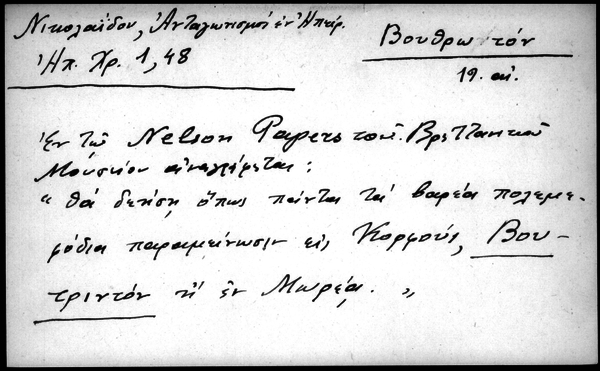 Νικολαΐδου, Ἀνταγωνισμοί ἐν Ἠπείρ.
Ἠπ. Χρ. 1, 48
Βουθρωτόν
19. αἰ.
Ἐν τῷ Nelson Papers τοῦ Βρεττανικοῦ
Μουσείου ἀναγράφεται:
“ θά δεήση ὅπως πάντα τά βαρέα πολεμε-
φόδια παραμείνωσιν εἰς Κορφούς, Βου-
τριντόν ἤ ἐν Μωρέᾳ. „